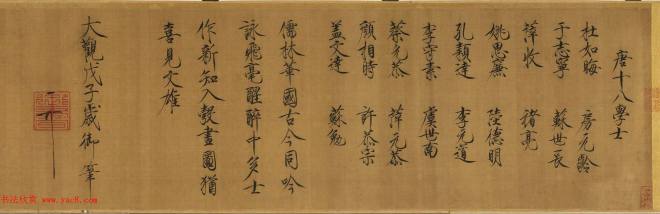 唐十八學士
杜如晦 房元齡
于志寧 蘇世長
薛收 褚亮
姚思廉 陸德明
孔穎達 李元道
李守素 虞世南
蔡允恭 薛元恭
顏相時 許恭宗
蓋文達 蘇勉
儒林華國古今同吟
詠飛毫醒醉中多士
作新知入彀畫圖猶
喜見文雄
大觀戊子歲御筆
书法欣赏 www.yac8.com